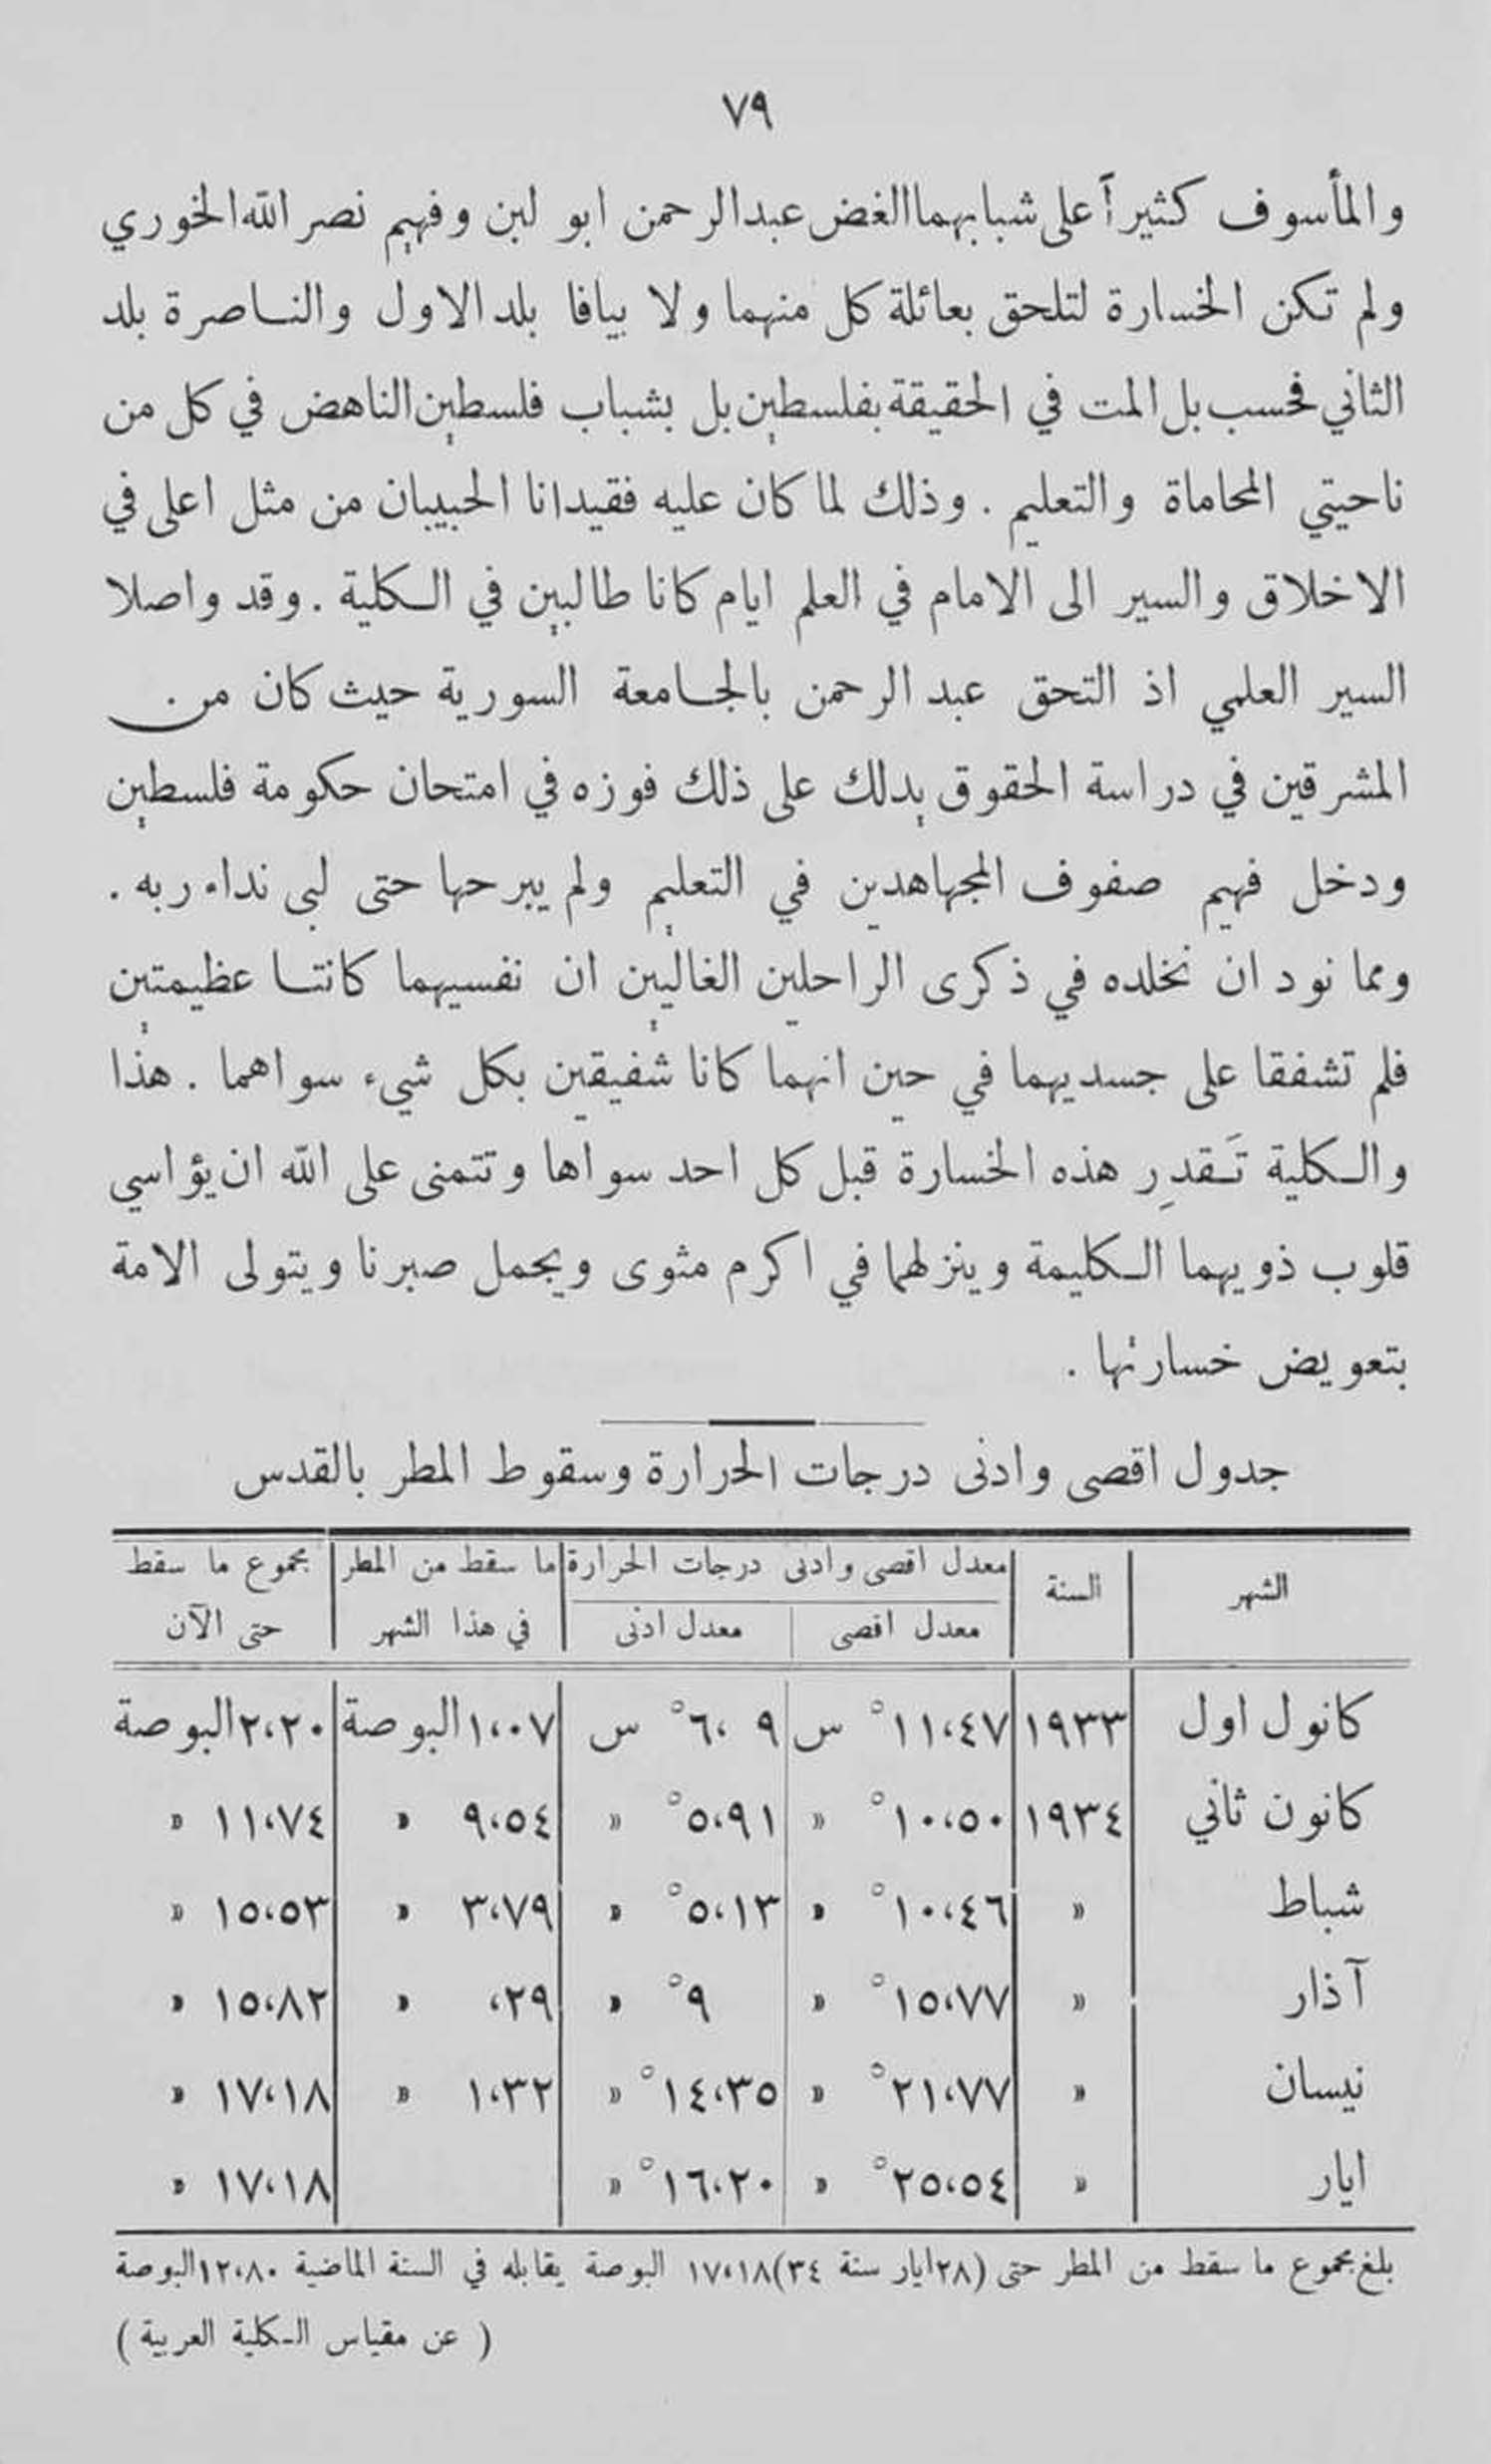 ٧٩
والمأسوف كثيراً على شبابهما الغض عبد الرحمن ابو لبن وفهيم نصر الله الخوري
ولم تكن الخسارة لتلحق بعائلة كل منهما ولا بيافا بلد الاول والناصرة بلد
الثاني فحسب بل المت في الحقيقة بفلسطين بل بشباب فلسطين الناهض في كل من
ناحيتي المحاماة والتعليم . وذلك لما كان عليه فقيدانا الحبيبان من مثل اعلى في
الاخلاق والسير الى الامام في العلم ايام كانا طالبين في الكلية . وقد واصلا
السير العلمي اذ التحق عبد الرحمن بالجامعة السورية حيث كان من
المشرقين في دراسة الحقوق يدلك على ذلك فوزه في امتحان حكومة فلسطين
ودخل فهيم صفوف المجهاهدين في التعليم ولم يبرحها حتى لبى نداء ربه .
ومما نود ان نخلده في ذكرى الراحلين الغاليين ان نفسيهما كانتا عظيمتين
فلم تشفقا على جسديهما في حين انهما كانا شفيقين بكل شيء سواهما . هذا
والكلية تَقدرِ هذه الخسارة قبل كل احد سواها وتتمنى على الله ان يؤاسي
قلوب ذويهما الكليمة وينزلهما في اكرم مثوى ويجمل صبرنا ويتولى الامة
بتعويض خسارتها .
جدول اقصى وادنى درجات الحرارة وسقوط المطر بالقدس
الشهر السنة معدل اقصى وادنى درجات الحرارة ما سقط من المطر مجموع ما سقط
معدل اقصى معدل ادنى في هذا الشهر حتى الآن
كانول اول ١٩٣٣ ١١،٤٧° س ٦،٩° س ١،٠٧ البوصة ٢،٢٠ البوصة
كانون ثاني ١٩٣٤ ١٠،٥٠° » ٥،٩١° » ٩،٥٤ » ١١،٧٤ »
شباط » ١٠،٤٦° » ٥،١٣° » ٣،٧٩ » ١٥،٥٣ »
آذار » ١٥،٧٧° » ٩° » ،٢٩ » ١٥،٨٢ »
نيسان » ٢١،٧٧° » ١٤،٣٥° » ١،٣٢ » ١٧،١٨ »
ايار » ٢٥،٥٤° » ١٦،٢٠° » ١٧،١٨ »
بلغ مجموع ما سقط من المطر حتى (٢٨ ايار سنة ٣٤) ١٧،١٨ البوصة يقابله في السنة الماضية ١٢،٨٠ البوصة
( عن مقياس الكلية العربية )